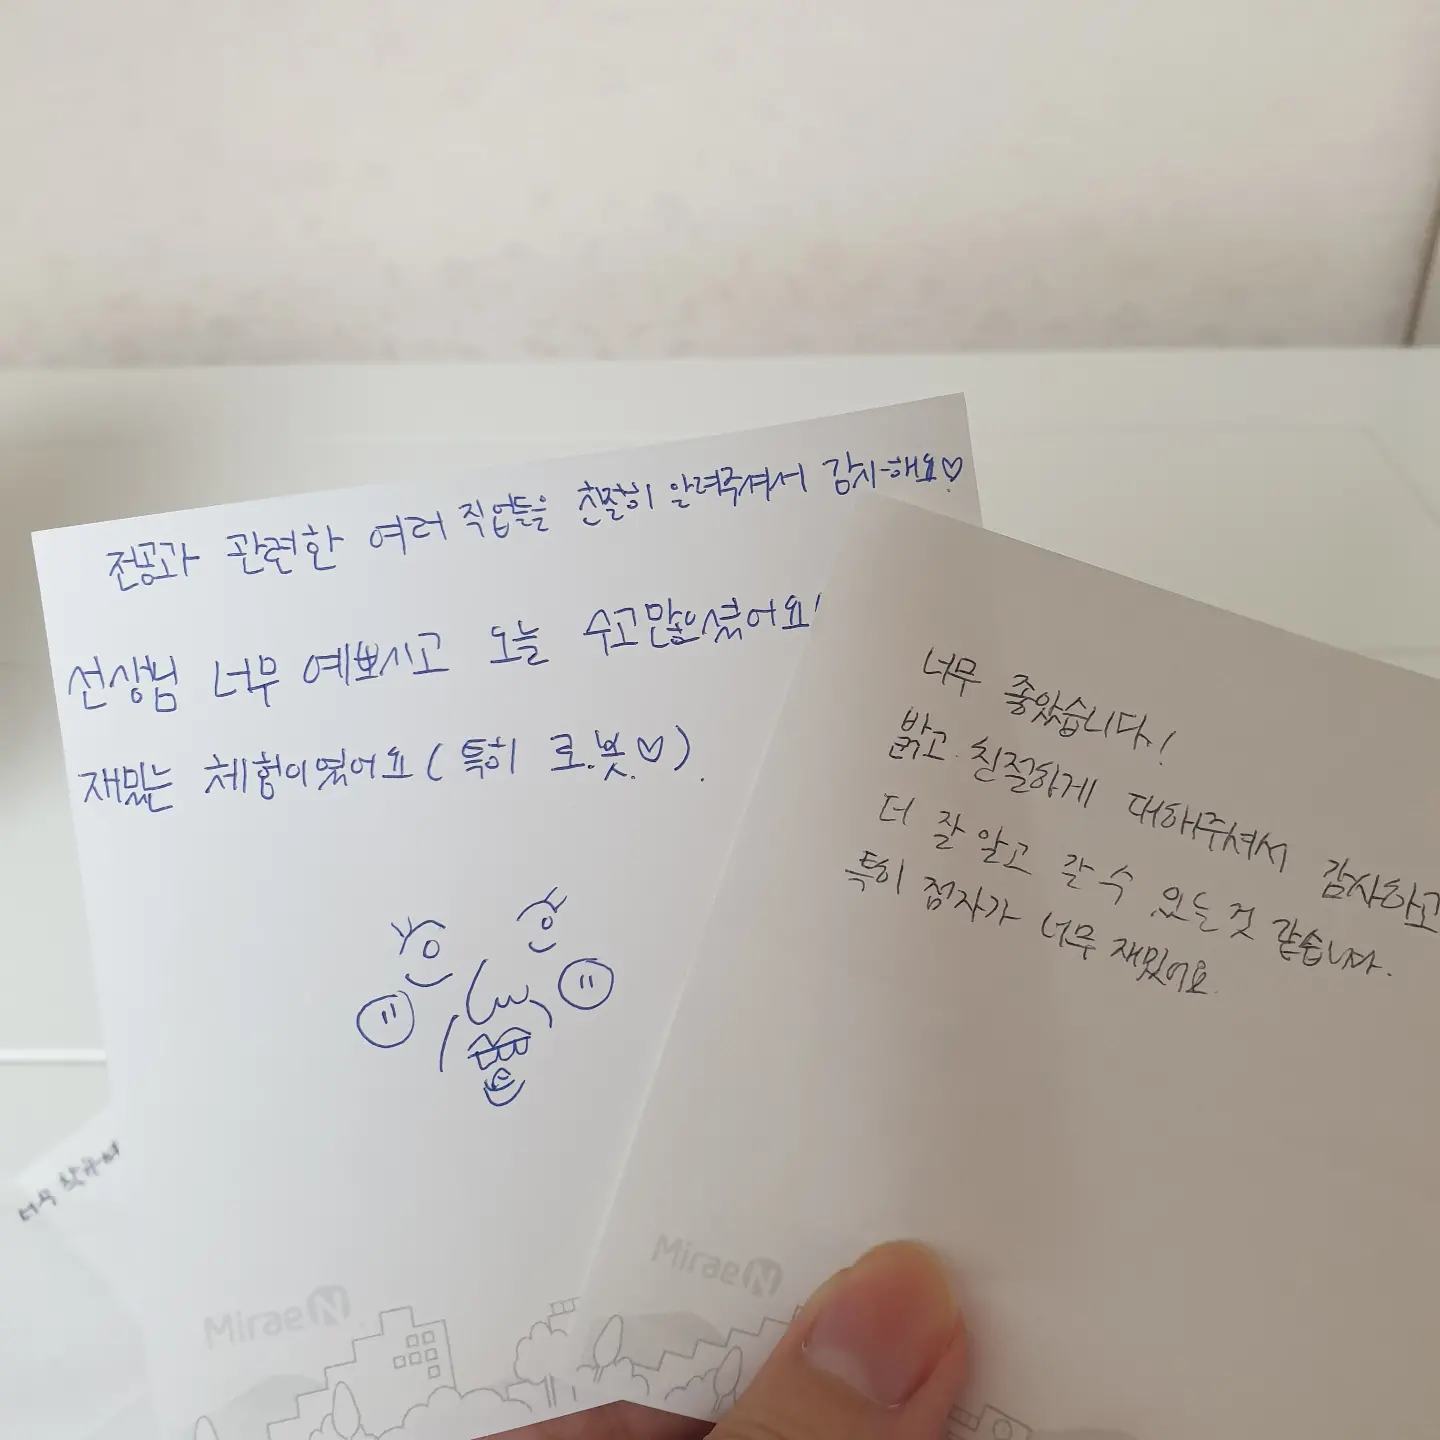 전공과 관련한 여러 직업들을 친절히 알려주셔서 감사해요♡
선생님 너무 예쁘시고 오늘 수고많으셨어요!
재밌는 체험이었어요 (특히 로.봇.♡).
너무 좋았습니다!
밝고 친절하게 대해주셔서 감사하고
더 잘 알고 갈 수 있는 것 같습니다.
특히 점자가 너무 재밌어요.
너무
MiraeN
MiraeN